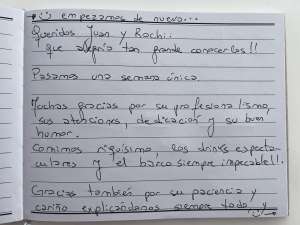 empezamos de nuevo...
Queridos Juan y Rochi..
que alegría tan grande conocerlos!!
Pasamos una semana única.
Muchas gracias por su profesionalismo,
sus atenciones, dedicación y su buen
humor.
Comimos riquísimo, los drinks especta-
culares y el barco siempre impecable!!.
Gracias también por su paciencia y
cariño explicándonos siempre todo, y